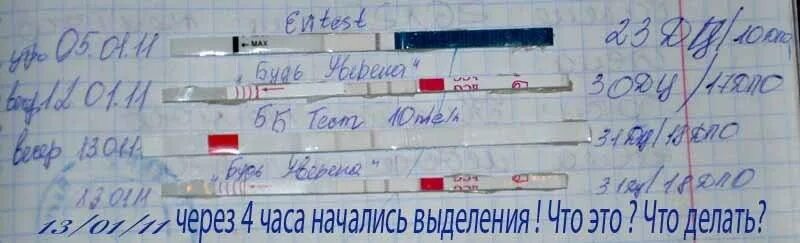 Entest
утро 05.01.11 ←MAX 23 ДЦ/10ДПО
"Будь Уверена"
веч 12.01.11 30ДЦ/17ДПО
ББ Тест 10mе/л
вечер 13.01.11 31ДЦ/18ДПО
"Будь Уверена"
13.01.11 31ДЦ/18ДПО
13/01/11 через 4 часа начались выделения! Что это? Что делать?